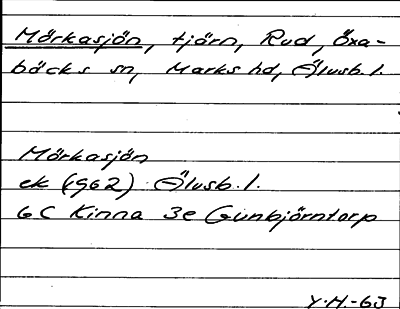 Mörkasjön, tjörn, Rud, Öxa-
bäcks sn, Marks hd, Älvsb. l.
Mörkasjön
ek (1962) Älvsb. l.
6C Kinna 3e Gunbjörntorp
Y.H.-63